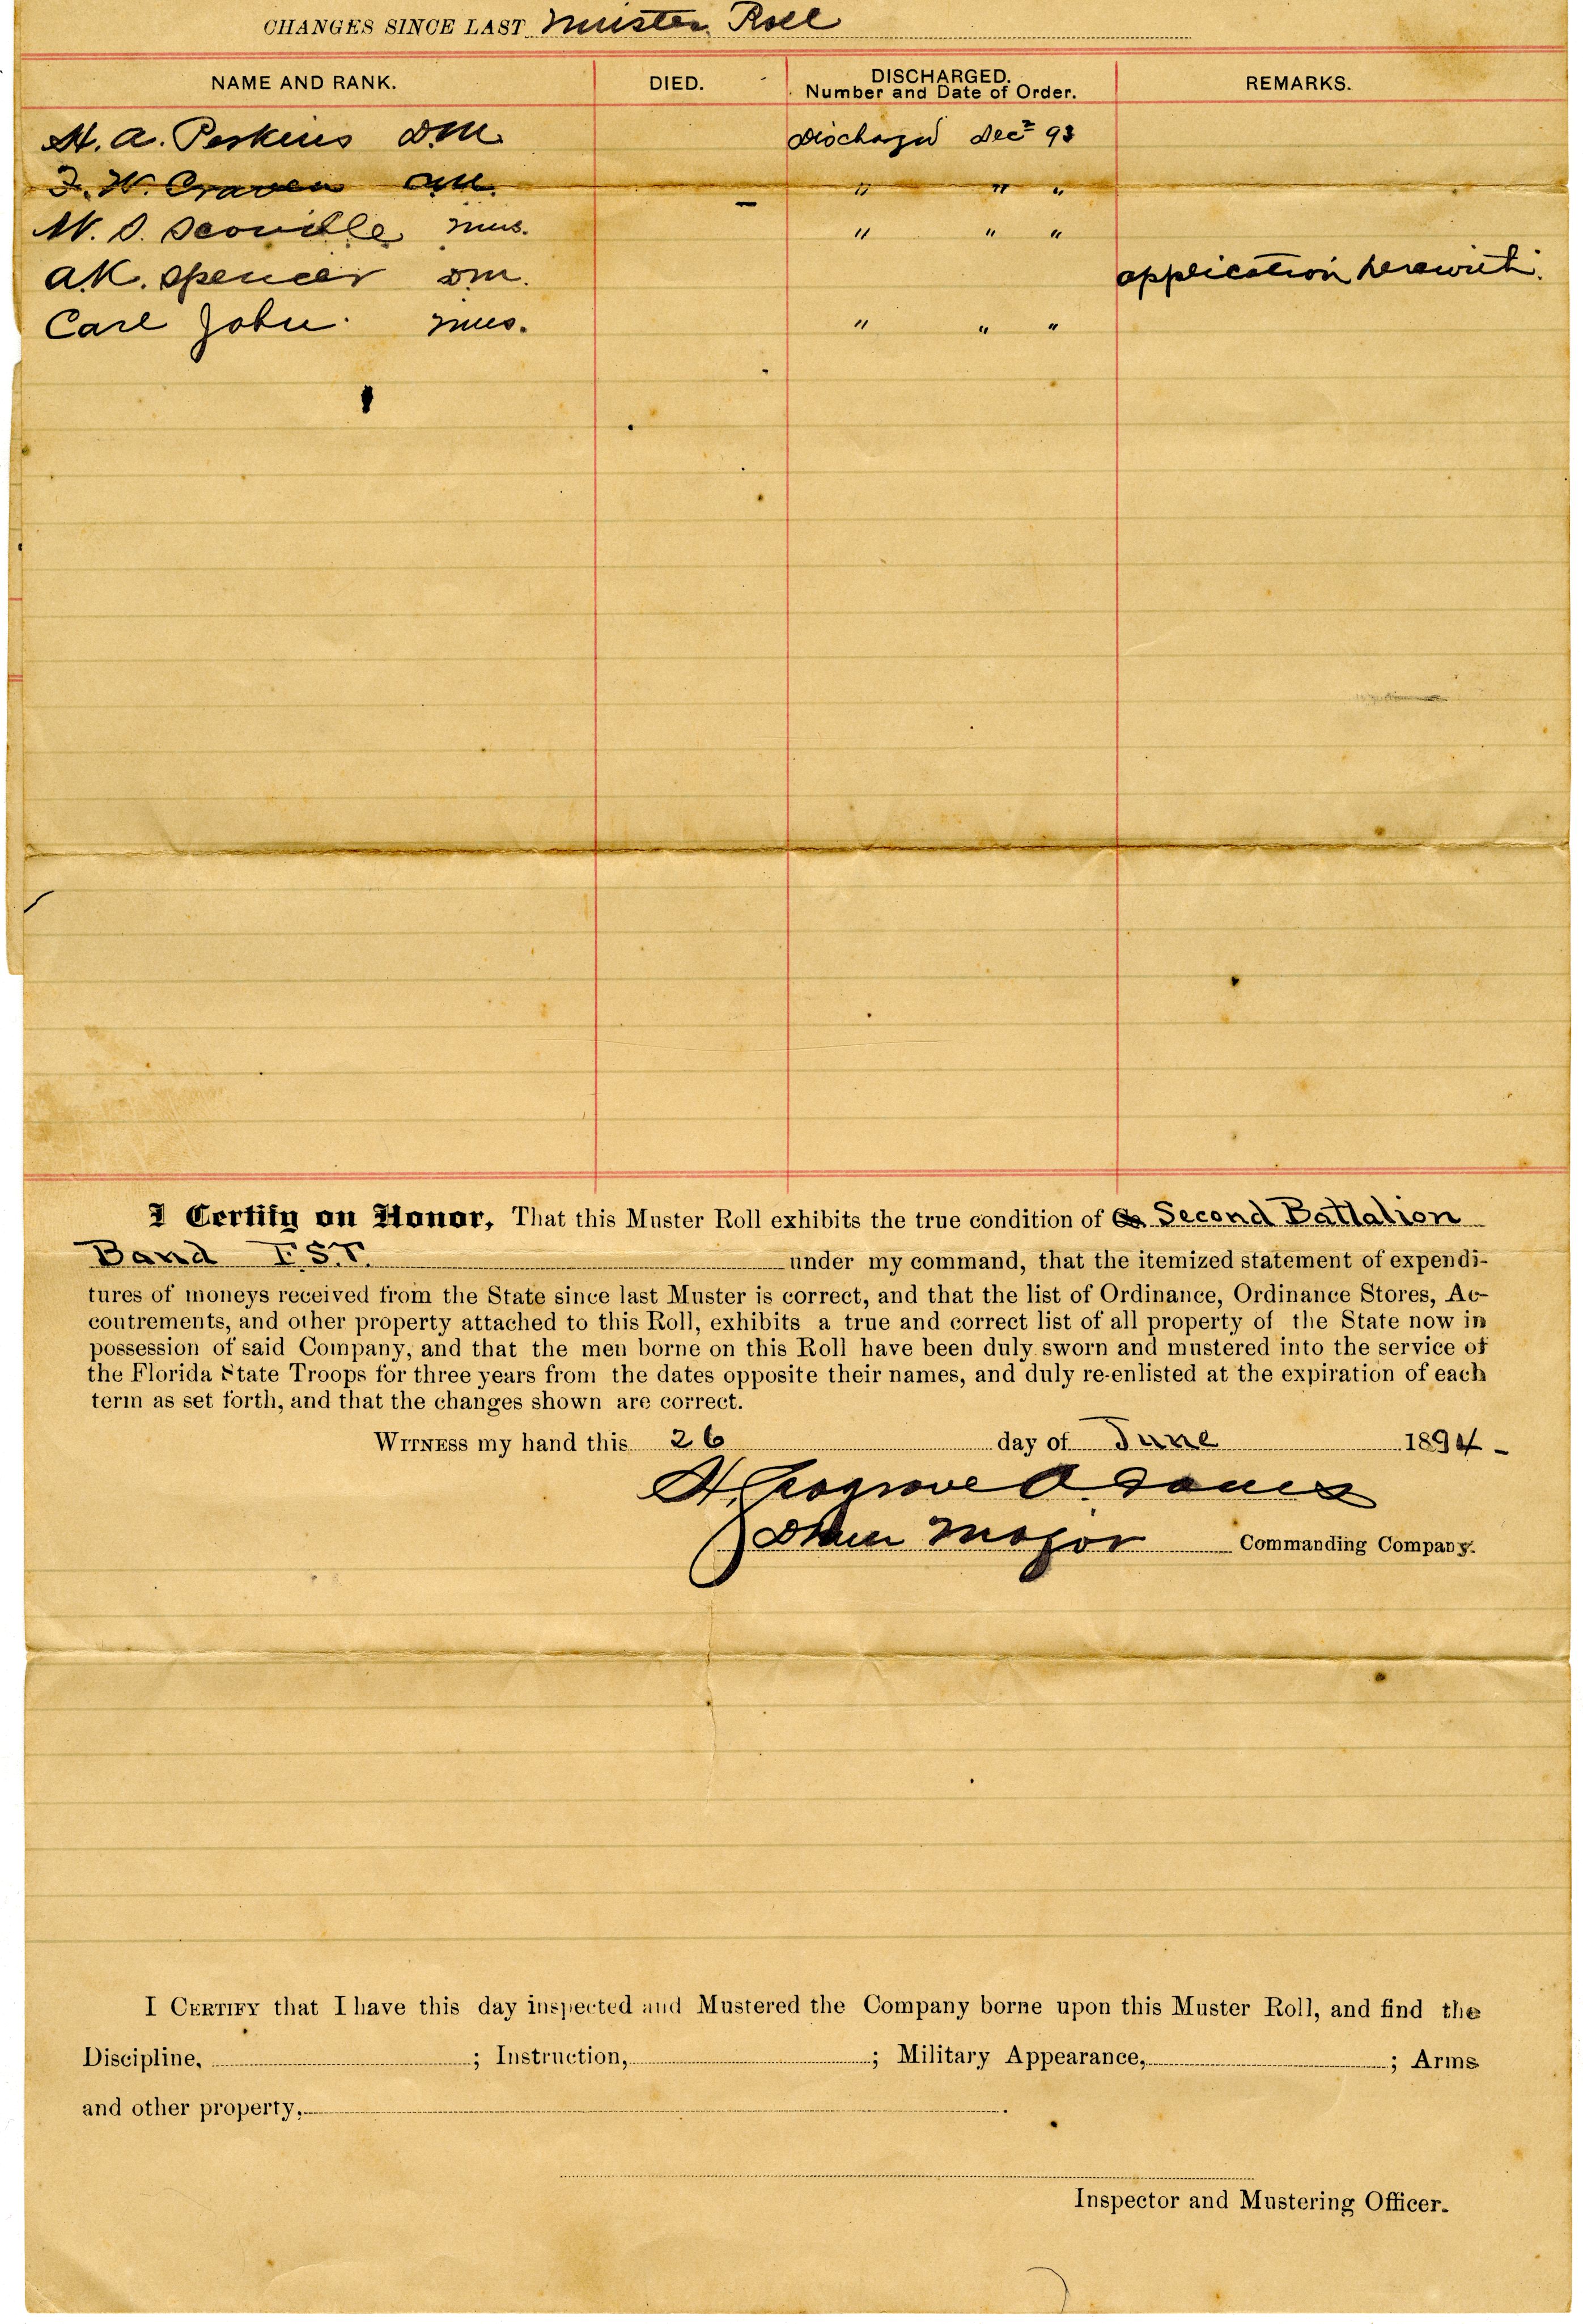 CHANGES SINCE LAST Muster Roll
NAME AND RANK. DIED. DISCHARGED. Number and Date of Order. REMARKS.
H. A. Perkins D.M. Discharged Dec 93
F. W. Craven " " "
W. S. Scoville mus. " " "
A.K. Spencer DM. application herewith.
Carl John. mus. " " "
I Certify on Honor, That this Muster Roll exhibits the true condition of Co. Second Battalion
Band F.S.T. under my command, that the itemized statement of expendi-
tures of moneys received from the State since last Muster is correct, and that the list of Ordinance, Ordinance Stores, Ac-
coutrements, and other property attached to this Roll, exhibits a true and correct list of all property of the State now in
possession of said Company, and that the men borne on this Roll have been duly sworn and mustered into the service of
the Florida State Troops for three years from the dates opposite their names, and duly re-enlisted at the expiration of each
term as set forth, and that the changes shown are correct.
WITNESS my hand this 26 day of June 1894
Major Commanding Company.
I CERTIFY that I have this day inspected and Mustered the Company borne upon this Muster Roll, and find the
Discipline, ; Instruction, ; Military Appearance, ; Arms
and other property, .
Inspector and Mustering Officer.